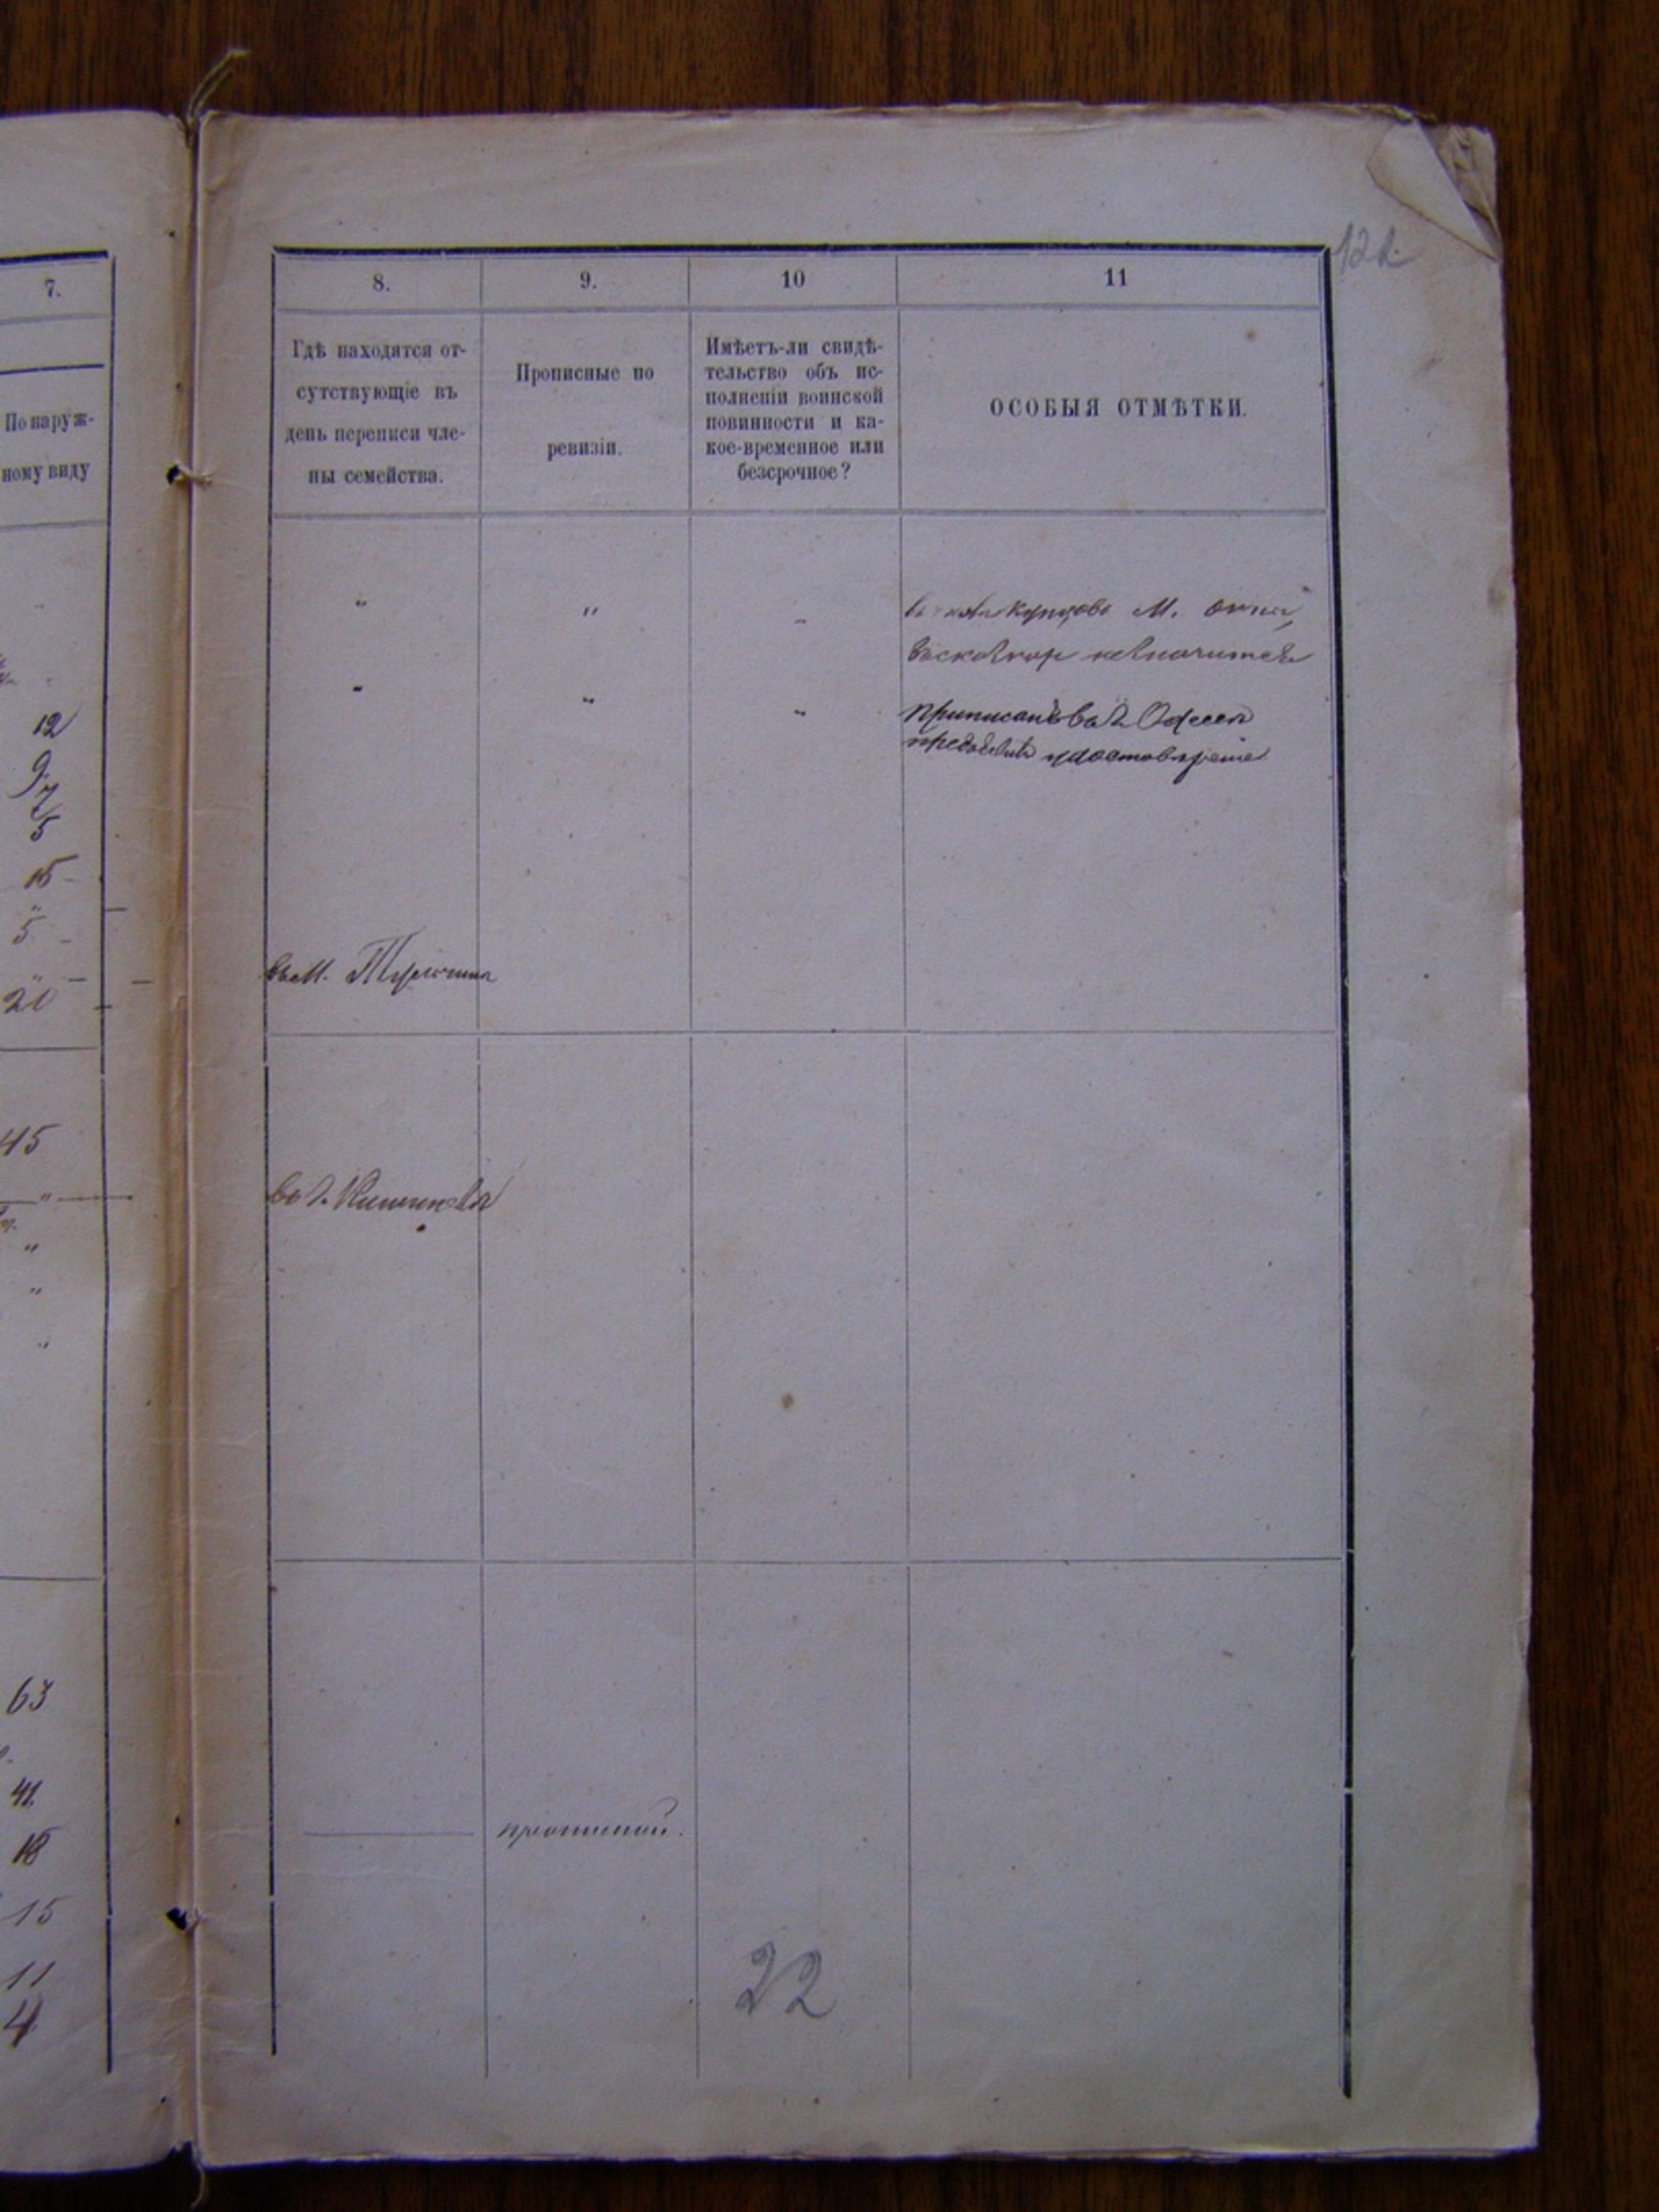 7.
По наруж-
ному виду
12
9
7
5
15
5
20
45
63
41
18
15
11
4
122.
8.
9.
10
11
Гдѣ находятся от-
сутствующіе въ
день переписи чле-
ны семейства.
Прописные по
ревизіи.
Имѣетъ-ли свидѣ-
тельство объ ис-
полненіи воинской
повинности и ка-
кое-временное или
безсрочное?
ОСОБЫЯ ОТМѢТКИ.
М.
Приписанъ въ г. Одессѣ
въ М.
въ г. Кишиневѣ
прописной.
22